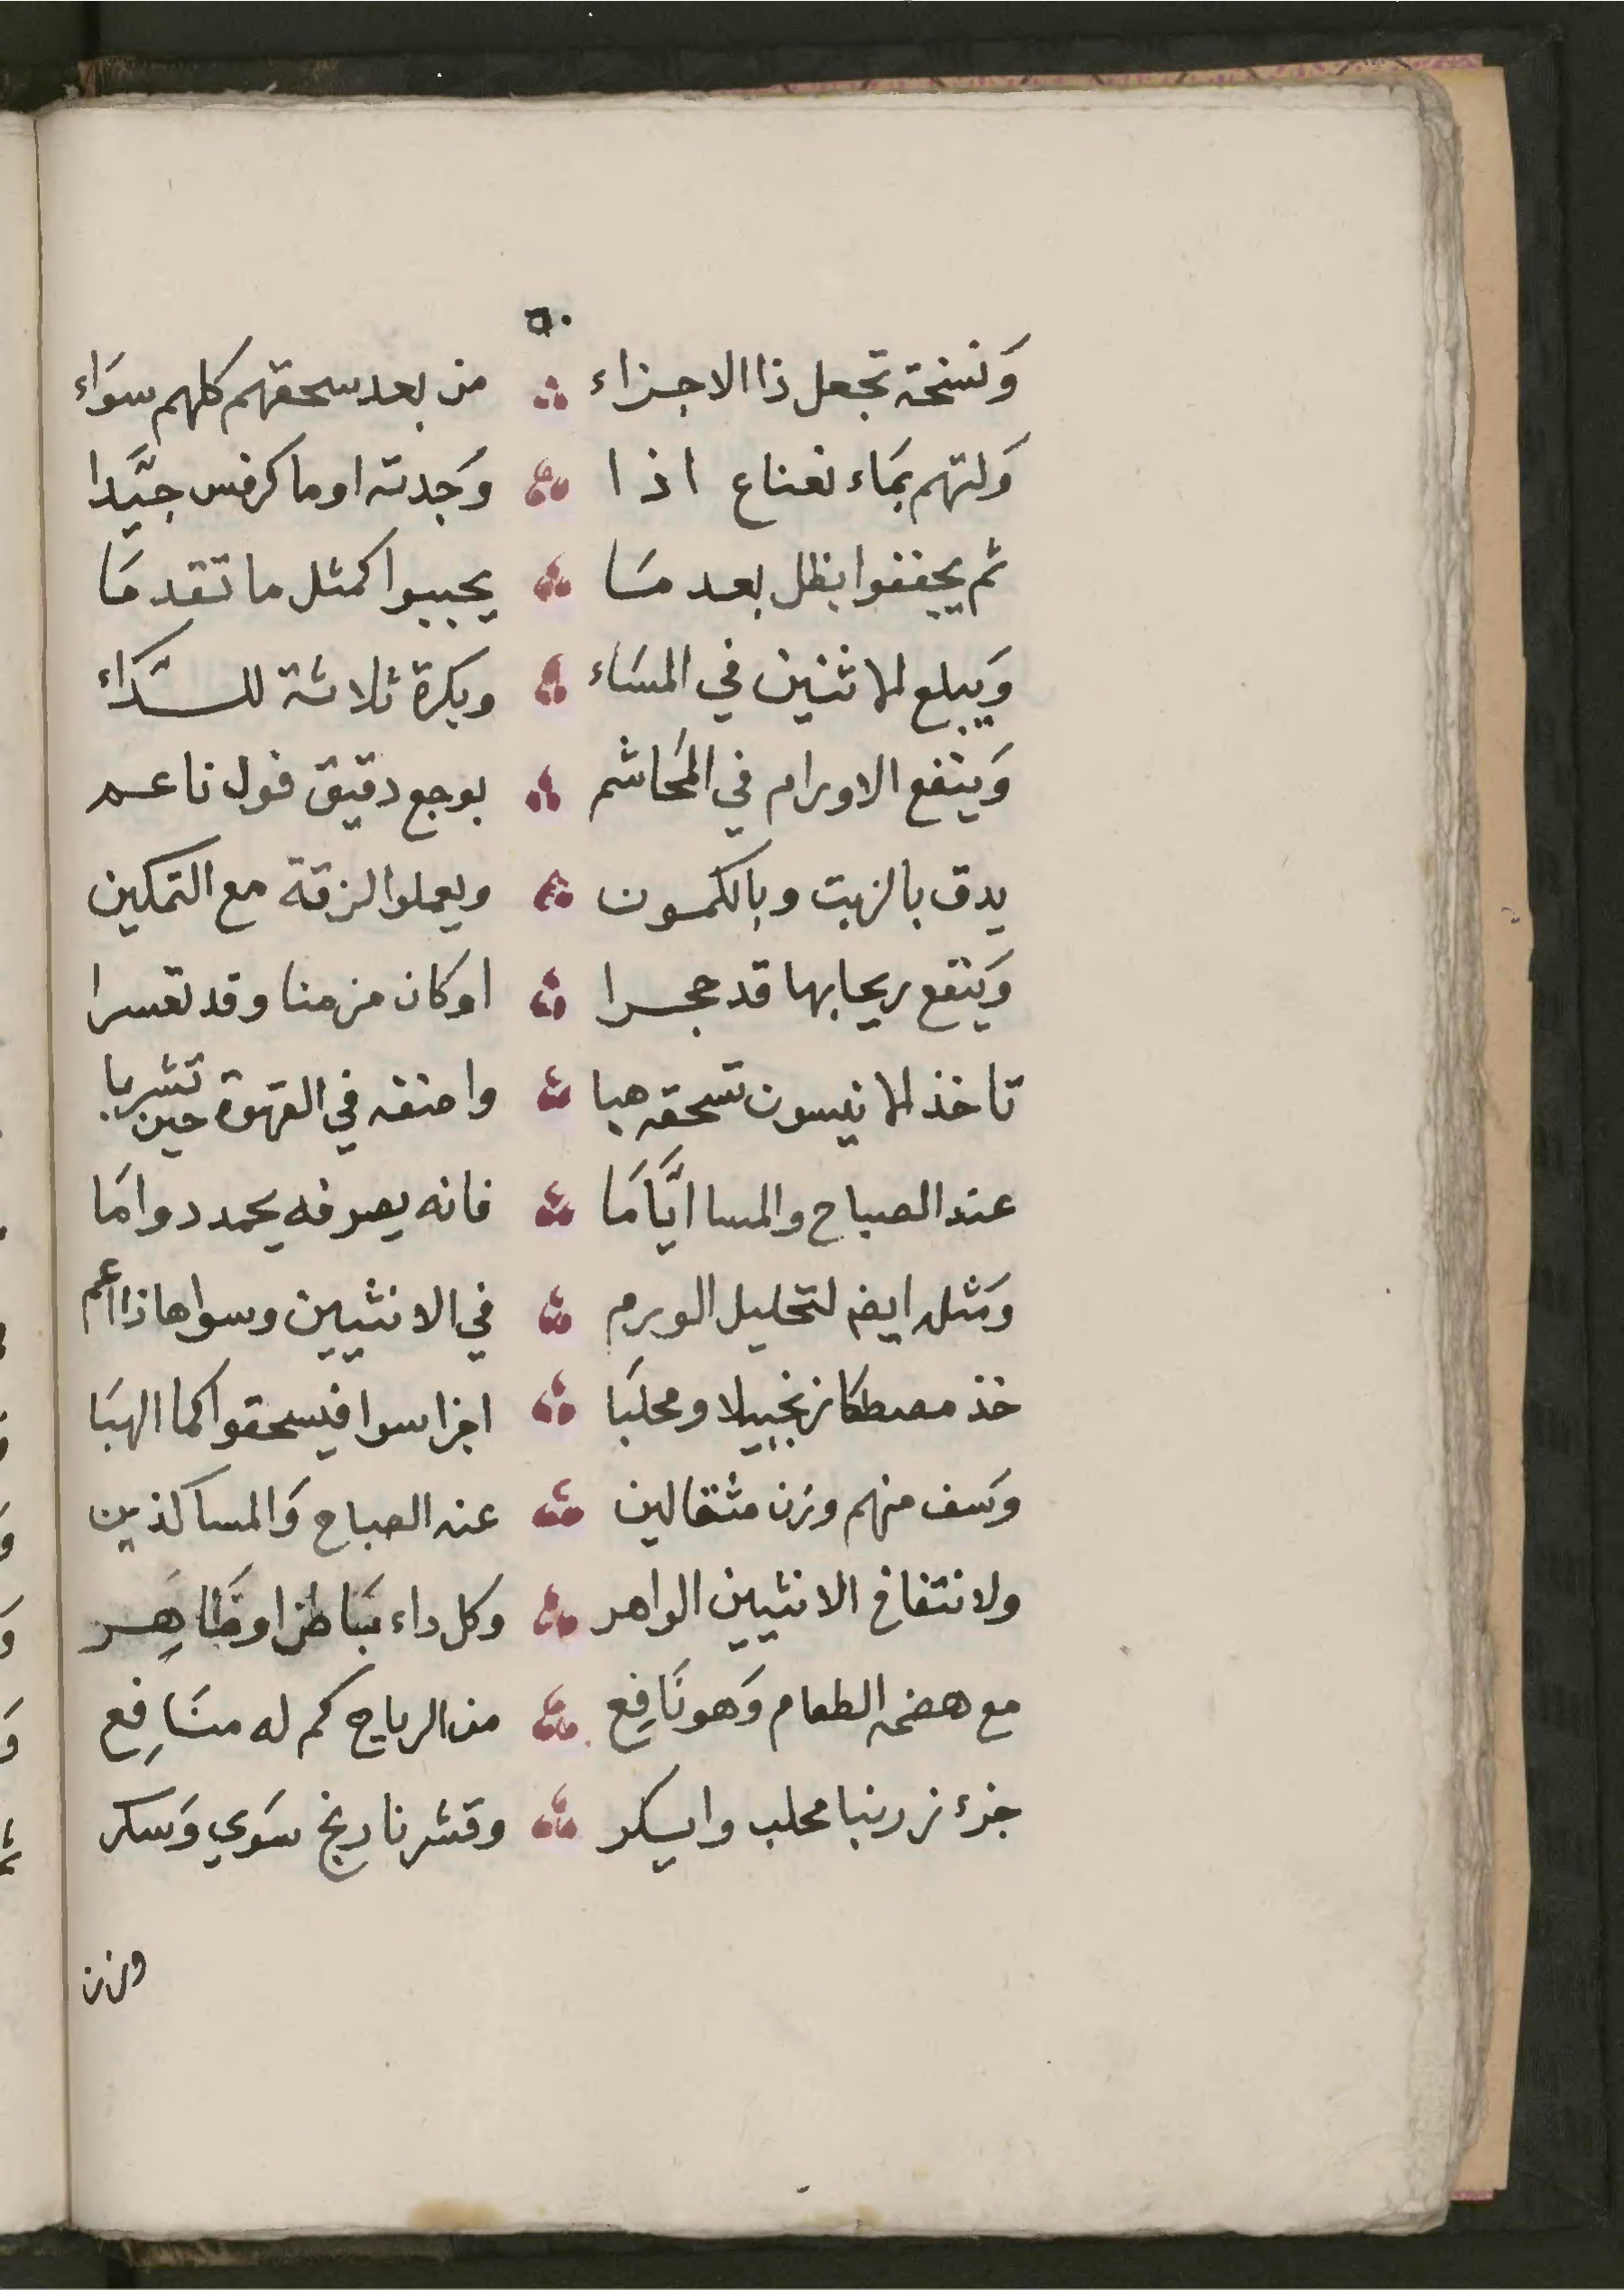 ٥٠
وَنسخة تجعل ذا الاجزاء من بعد سحقهم كلهم سوَاء
وَلتهم بمَاء نعناع اذا وَجدته اوما كرفس جيَّدا
ثم يجففوا بظل بعد مسَا يحببوا كمثل ما تقدمَا
وَيبلع الاثنين في المسَاء وبكرة ثلاثة للسَّدَاء
وَينفع الاورام في المحَاشم بوجع دقيق فول ناعم
يدق بالزيت وبالكمون ويعملوا لزقة مع التمكين
وَينفع ريحا بها قد حجرا اوكان مزمنا وقد تعسرا
تاخذ الانيسون تسحقه هبا واضفه في القهوة حين تشربا
عند الصباح والمسا ايَّامَا فانه يصرفه يحمد دوامَا
وَمثله ايضا لتحليل الورم في الانثيين وسواها ذا أعم
خذ مصطكا زنجبيلا ومحلبَا اجزا سوا فيسحقوا كما الهبَا
وَسف منهم وزن مثقالين عند الصباح وَالمسا كذين
ولانتفاخ الانثيين الواهر وكل داء بَباطنا اوظَاهِر
مع هضمه الطعام وَهو نَافِع من الرياح كم له منَافِع
جزء زرنبا محلب وايسكر وقشر نارنج سَوي وَسكر
وزن